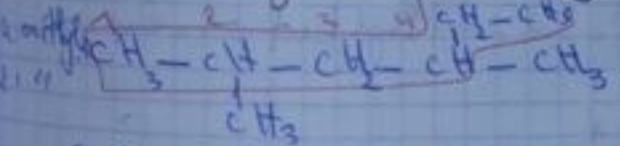 2 3 4 CH2-CH3
CH3 - CH - CH2 - CH - CH3
CH3